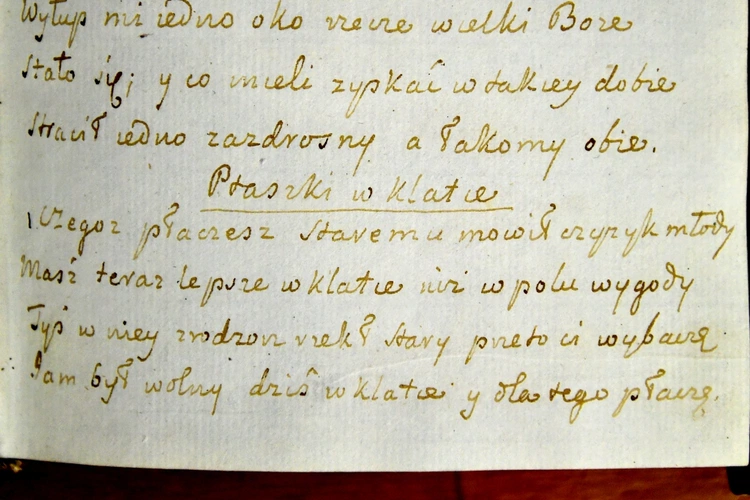 Wyłup mi iedno oko rzecze wielki Boże
Stało się; y co mieli zyskać w takiey dobie
Stracił iedno zazdrosny a łakomy obie.
Ptaszki w klatce
Czegoż płaczesz staremu mowił czyżyk młody
Masz teraz lepsze w klatce niż w polu wygody
Tyś w niey zrodzon rzekł stary przeto ci wybaczę
Jam był wolny dziś w klatce y dla tego płaczę.